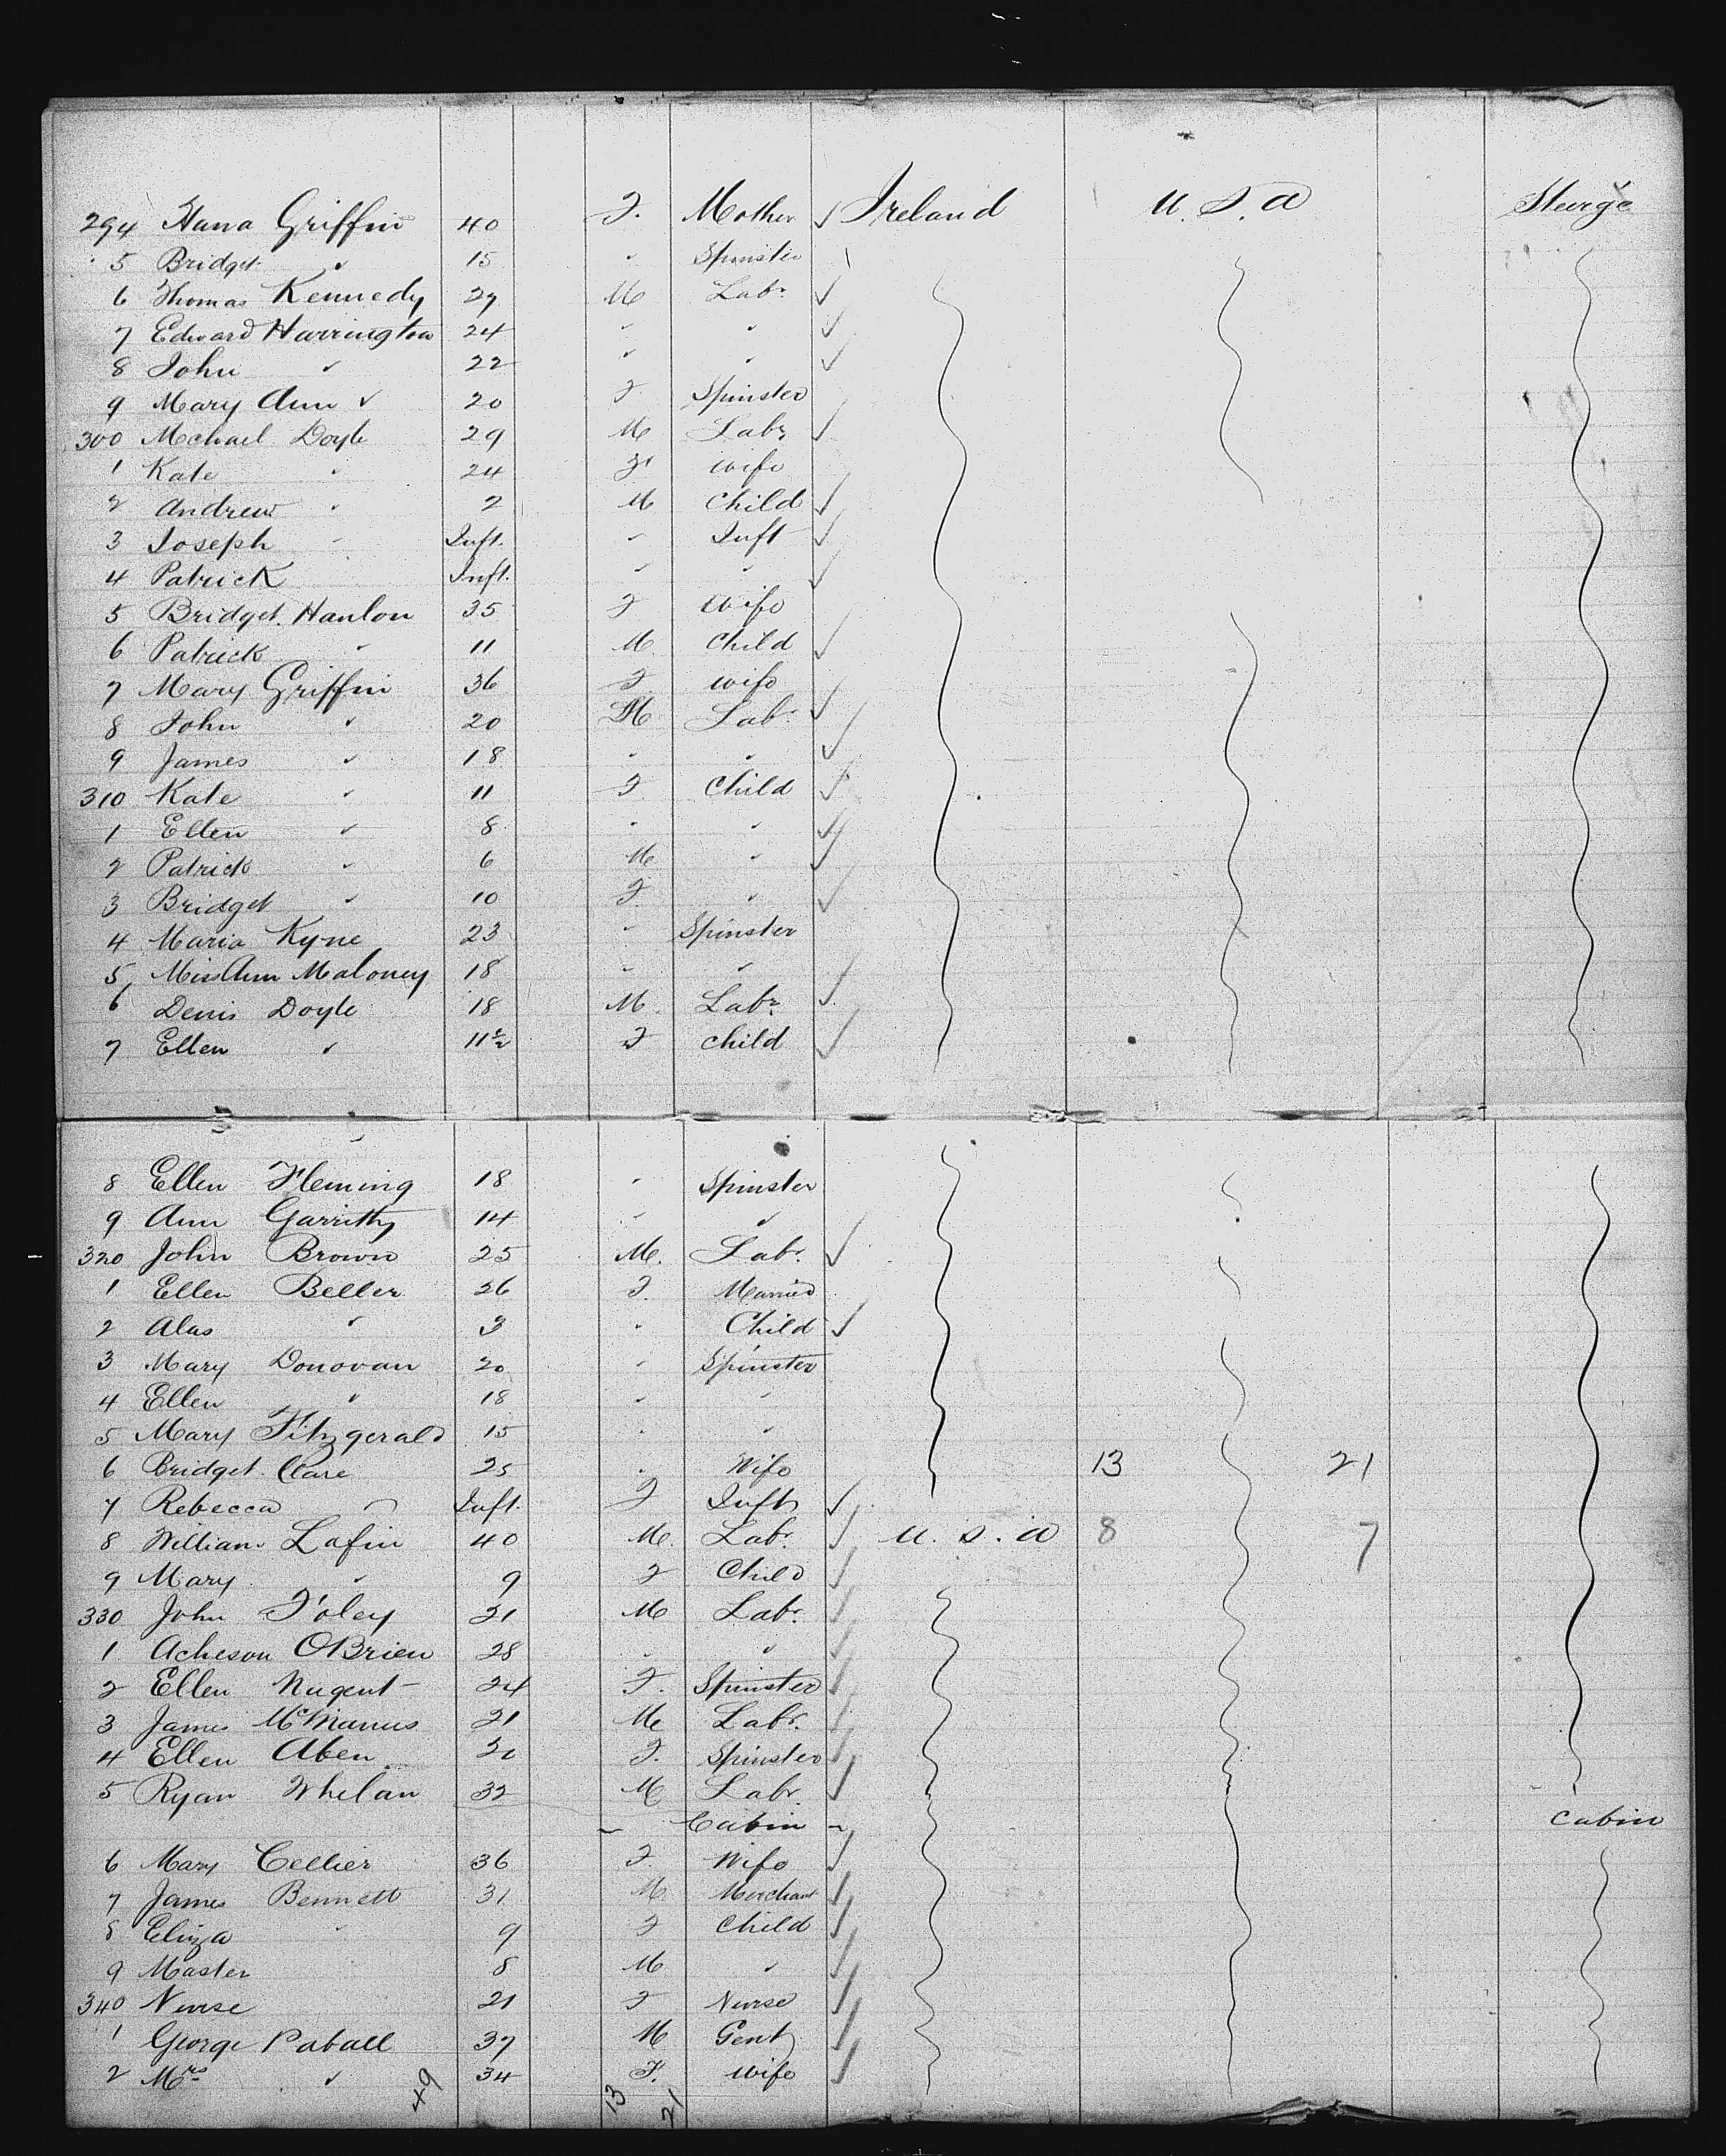 294 Hana Griffin 40 F. Mother ✓ Ireland U.S.A Steerge
5 Bridget " 15 " Spinster
6 Thomas Kennedy 27 M Labr. ✓
7 Edward Harrington 24 " " ✓
8 John " 22 " " ✓
9 Mary Ann " 20 F Spinster
300 Michael Doyle 29 M Labr ✓
1 Kate " 24 F wife
2 Andrew " 2 M Child ✓
3 Joseph " Inft. " Inft ✓
4 Patrick Inft. " " ✓
5 Bridget Hanlon 35 F wife
6 Patrick " 11 M Child ✓
7 Mary Griffin 36 F wife
8 John " 20 M Labr. ✓
9 James " 18 " " ✓
310 Kate " 11 F Child ✓
1 Ellen " 8 " " ✓
2 Patrick " 6 M " ✓
3 Bridget " 10 F " ✓
4 Maria Kyne 23 " Spinster
5 Miss Ann Maloney 18 " "
6 Denis Doyle 18 M Labr. ✓
7 Ellen " 11½ F child ✓
8 Ellen Fleming 18 " Spinster
9 Ann Garritty 14 " "
320 John Brown 25 M. Labr. ✓
1 Ellen Beller 26 F. Married
2 Alas " 3 " Child ✓
3 Mary Donovan 20 " Spinster
4 Ellen " 18 " "
5 Mary Fitzgerald 15 " "
6 Bridget Clare 25 " Wife 13 21
7 Rebecca " Inft. F Inft ✓
8 William Lafin 40 M. Labr. ✓ U.S.A 8 7
9 Mary " 9 F Child ✓
330 John Foley 21 M Labr. ✓
1 Acheson OBrien 28 " " ✓
2 Ellen Nugent 24 F. Spinster ✓
3 James McManus 21 M Labr. ✓
4 Ellen Aben F. Spinster ✓
5 Ryan Whelan 32 M Labr. ✓
Cabin Cabin
6 Mary Cellier 36 F. Wife ✓
7 James Bennett 31 M. Merchant ✓
8 Eliza " 9 F Child ✓
9 Master 8 M " ✓
340 Nurse 21 F Nurse ✓
1 George Paball 37 M Gent ✓
2 Mrs " 34 F. wife ✓
49 13 21